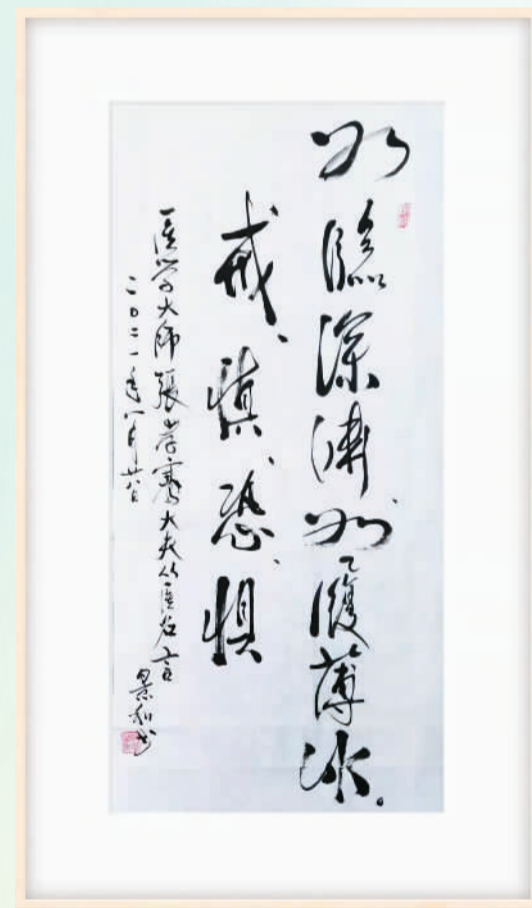 如臨深渊如履薄冰。
戒、慎、恐、惧
医学大师張孝骞大夫从医名言
二〇二一年八月廿八日
景和书